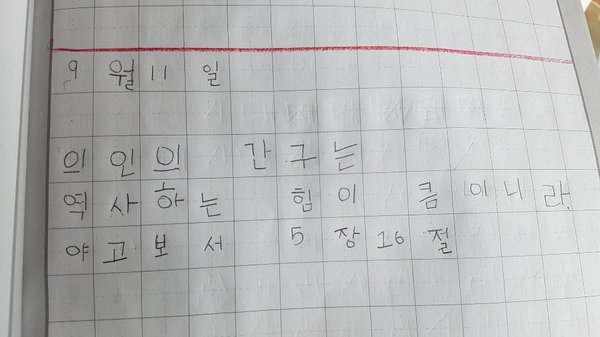 9월 11일
의인의 간구는
역사하는 힘이 큼이니라.
야고보서 5장 16절